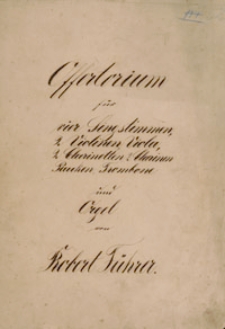 Offertorium
für
vier Singstimmen,
2 Violinen, Viola,
2 Clarinetten, 2 Clarinen
Pauken, Trombone
und
Orgel
von
Robert Führer.